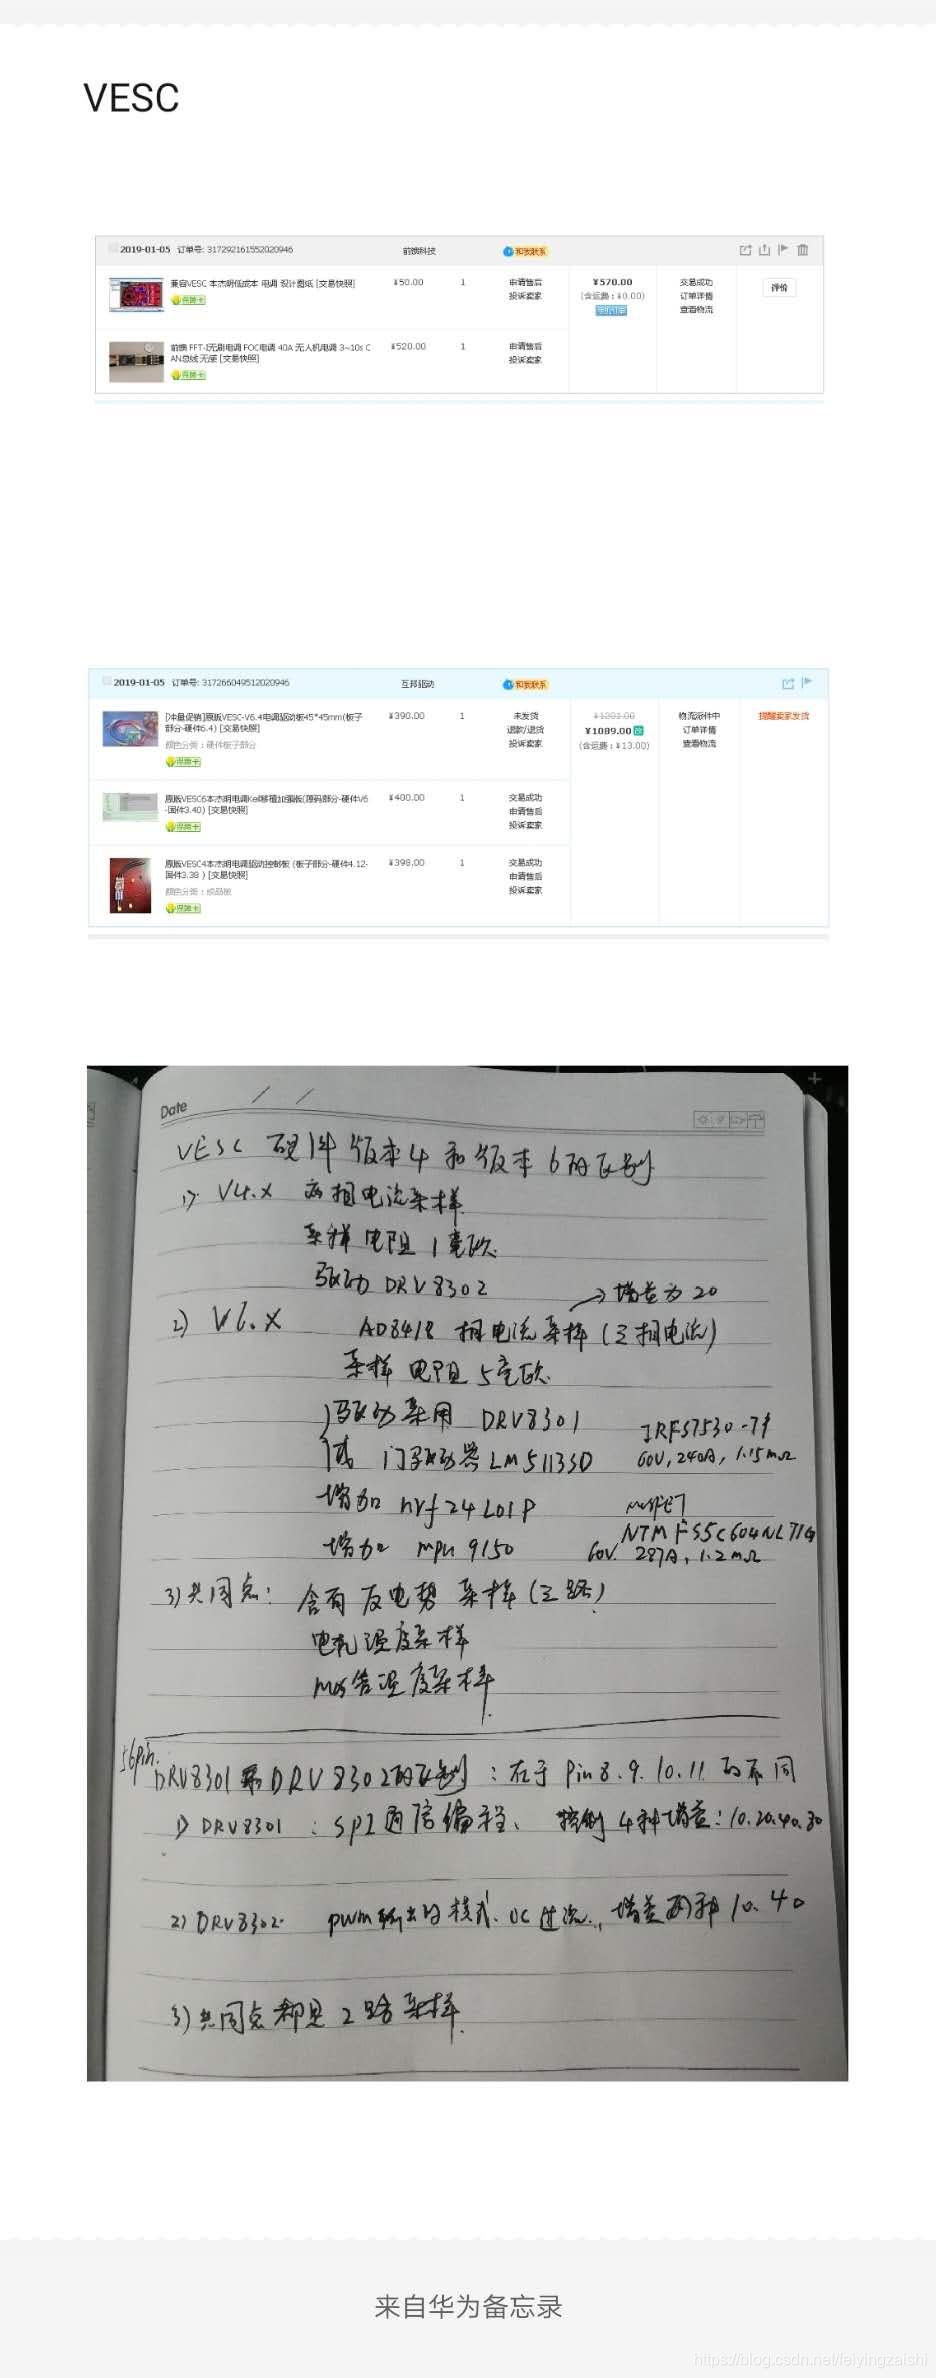 VESC
2019-01-05 订单号: 317292161552020946 前嬴科技 和我联系
兼容VESC 本杰明低成本 电调 设计图纸 [交易快照] ¥50.00 1 申请售后 ¥570.00 交易成功 评价
保障卡 投诉卖家 (含运费:¥0.00) 订单详情
查看物流
FFT-I无刷电调 FOC电调 40A 无人机电调 3~10s C ¥520.00 1 申请售后
AN总线 无感 [交易快照] 投诉卖家
保障卡
2019-01-05 订单号: 317266049512020946 互邦驱动 和我联系
[冲量促销]原版VESC-V6.4电调驱动板45*45mm(板子 ¥390.00 1 未发货 ¥1201.00 物流派件中 提醒卖家发货
部分-硬件6.4) [交易快照] 退款/退货 ¥1089.00 订单详情
颜色分类:硬件板子部分 投诉卖家 (含运费:¥13.00) 查看物流
保障卡
原版VESC6本杰明电调Keil移植加强版(源码部分-硬件V6 ¥400.00 1 交易成功
-固件3.40) [交易快照] 申请售后
保障卡 投诉卖家
原版VESC4本杰明电调驱动控制板 (板子部分-硬件4.12- ¥398.00 1 交易成功
固件3.38 ) [交易快照] 申请售后
颜色分类:成品板 投诉卖家
保障卡
Date / /
VESC 硬件版本4和版本6的区别
1) V4.x 两相电流采样
采样电阻1毫欧
驱动 DRV8302
→增益为20
2) V6.x AD8418 相电流采样(三相电流)
采样电阻 5毫欧
驱动采用 DRV8301 IRFS7530-7P
或 门驱动器LM5113SD 60V, 240A, 1.15mΩ
增加 nrf24L01P MOSFET
NTMFS5C604NLT1G
增加 mpu 9150 60V. 287A, 1.2mΩ
3) 共同点: 含有反电势采样(三路)
电机温度采样
Mos管温度采样.
56pin.
DRV8301和DRV8302的区别:在于Pin8.9.10.11的不同
1) DRV8301 : SPI通信编程、控制4种增益:10.20.40.80
2) DRV8302 pwm输出的模式、OC过流.,增益两种10.40
3) 共同点都是2路采样.
来自华为备忘录
https://blog.csdn.net/feiyingzaishi